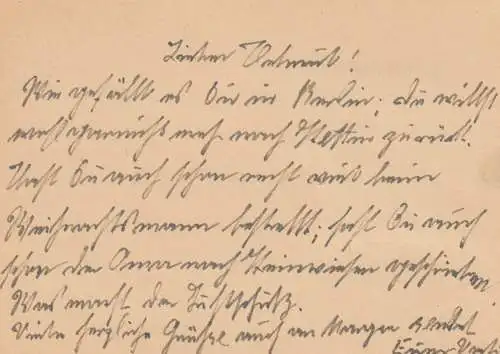 Lieber Helmut!
Wie gefällt es Dir in Berlin, du willst
wohl garnicht mehr nach Stettin zurück.
Hast Du auch schon recht viel beim
Weihnachtsmann bestellt, hast Du auch
schon der Oma nach Steinwiesen geschrieben
Was macht der Luftschutz.
Viele herzliche Grüsse auch an sendet
Euer